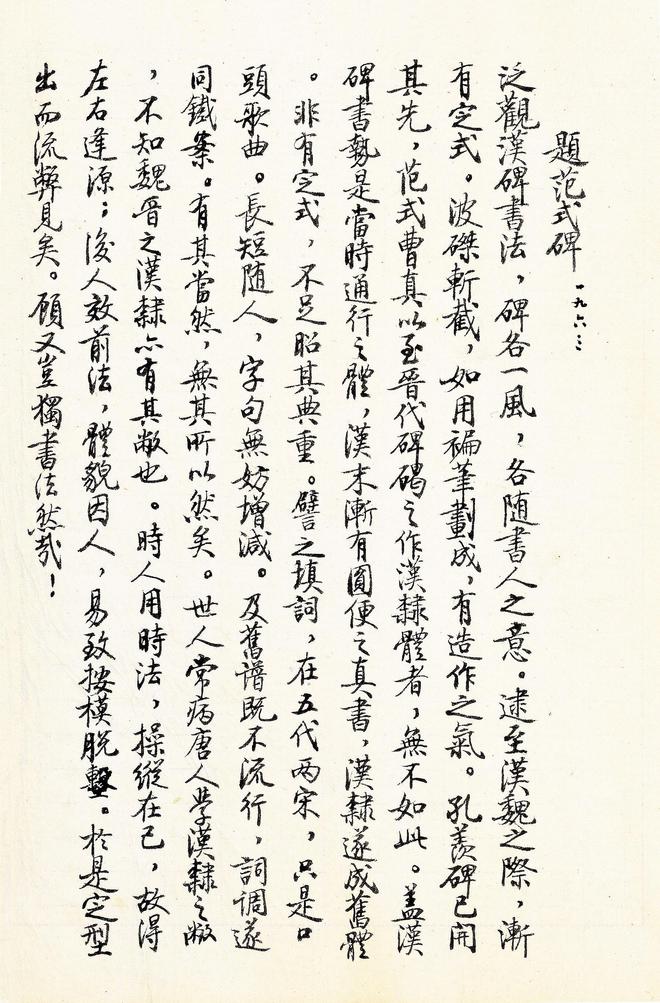 題范式碑 一九六三
泛觀漢碑書法，碑各一風，各随書人之意。逮至漢魏之際，漸
有定式。波磔斬截，如用褊筆劃成，有造作之氣。孔羨碑已開
其先，范式曹真以至晉代碑碣之作漢隸體者，無不如此。盖漢
碑書勢是當時通行之體，漢末漸有圓便之真書，漢隸遂成舊體
。非有定式，不足昭其典重。譬之填詞，在五代两宋，只是口
頭歌曲。長短随人，字句無妨增減。及舊譜既不流行，詞調遂
同鐵案。有其當然，無其所以然矣。世人常病唐人學漢隸之敝
，不知魏晋之漢隸亦有其敝也。時人用時法，操縱在己，故得
左右逢源；後人效前法，體貌因人，易致按模脱墼。於是定型
出而流弊見矣。顧又豈獨書法然哉！